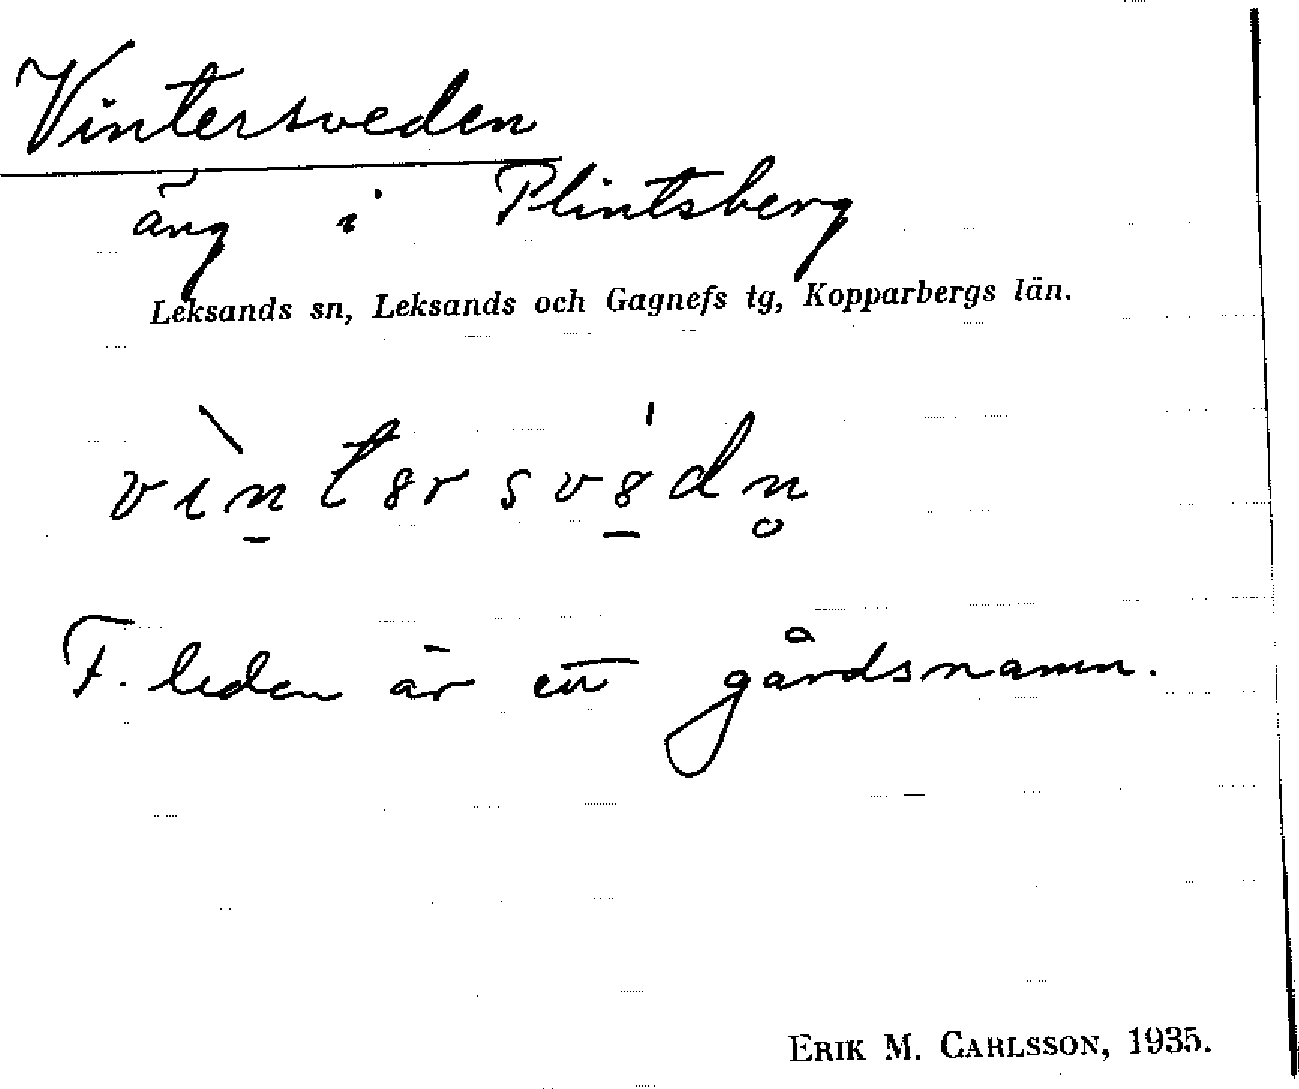 Vintersveden
äng i Plintsberg
Leksands sn, Leksands och Gagnefs tg, Kopparbergs län.
vìn̠tərsvə̠́dn̥
F. leden är ett gårdsnamn.
ERIK M. CARLSSON, 1935.